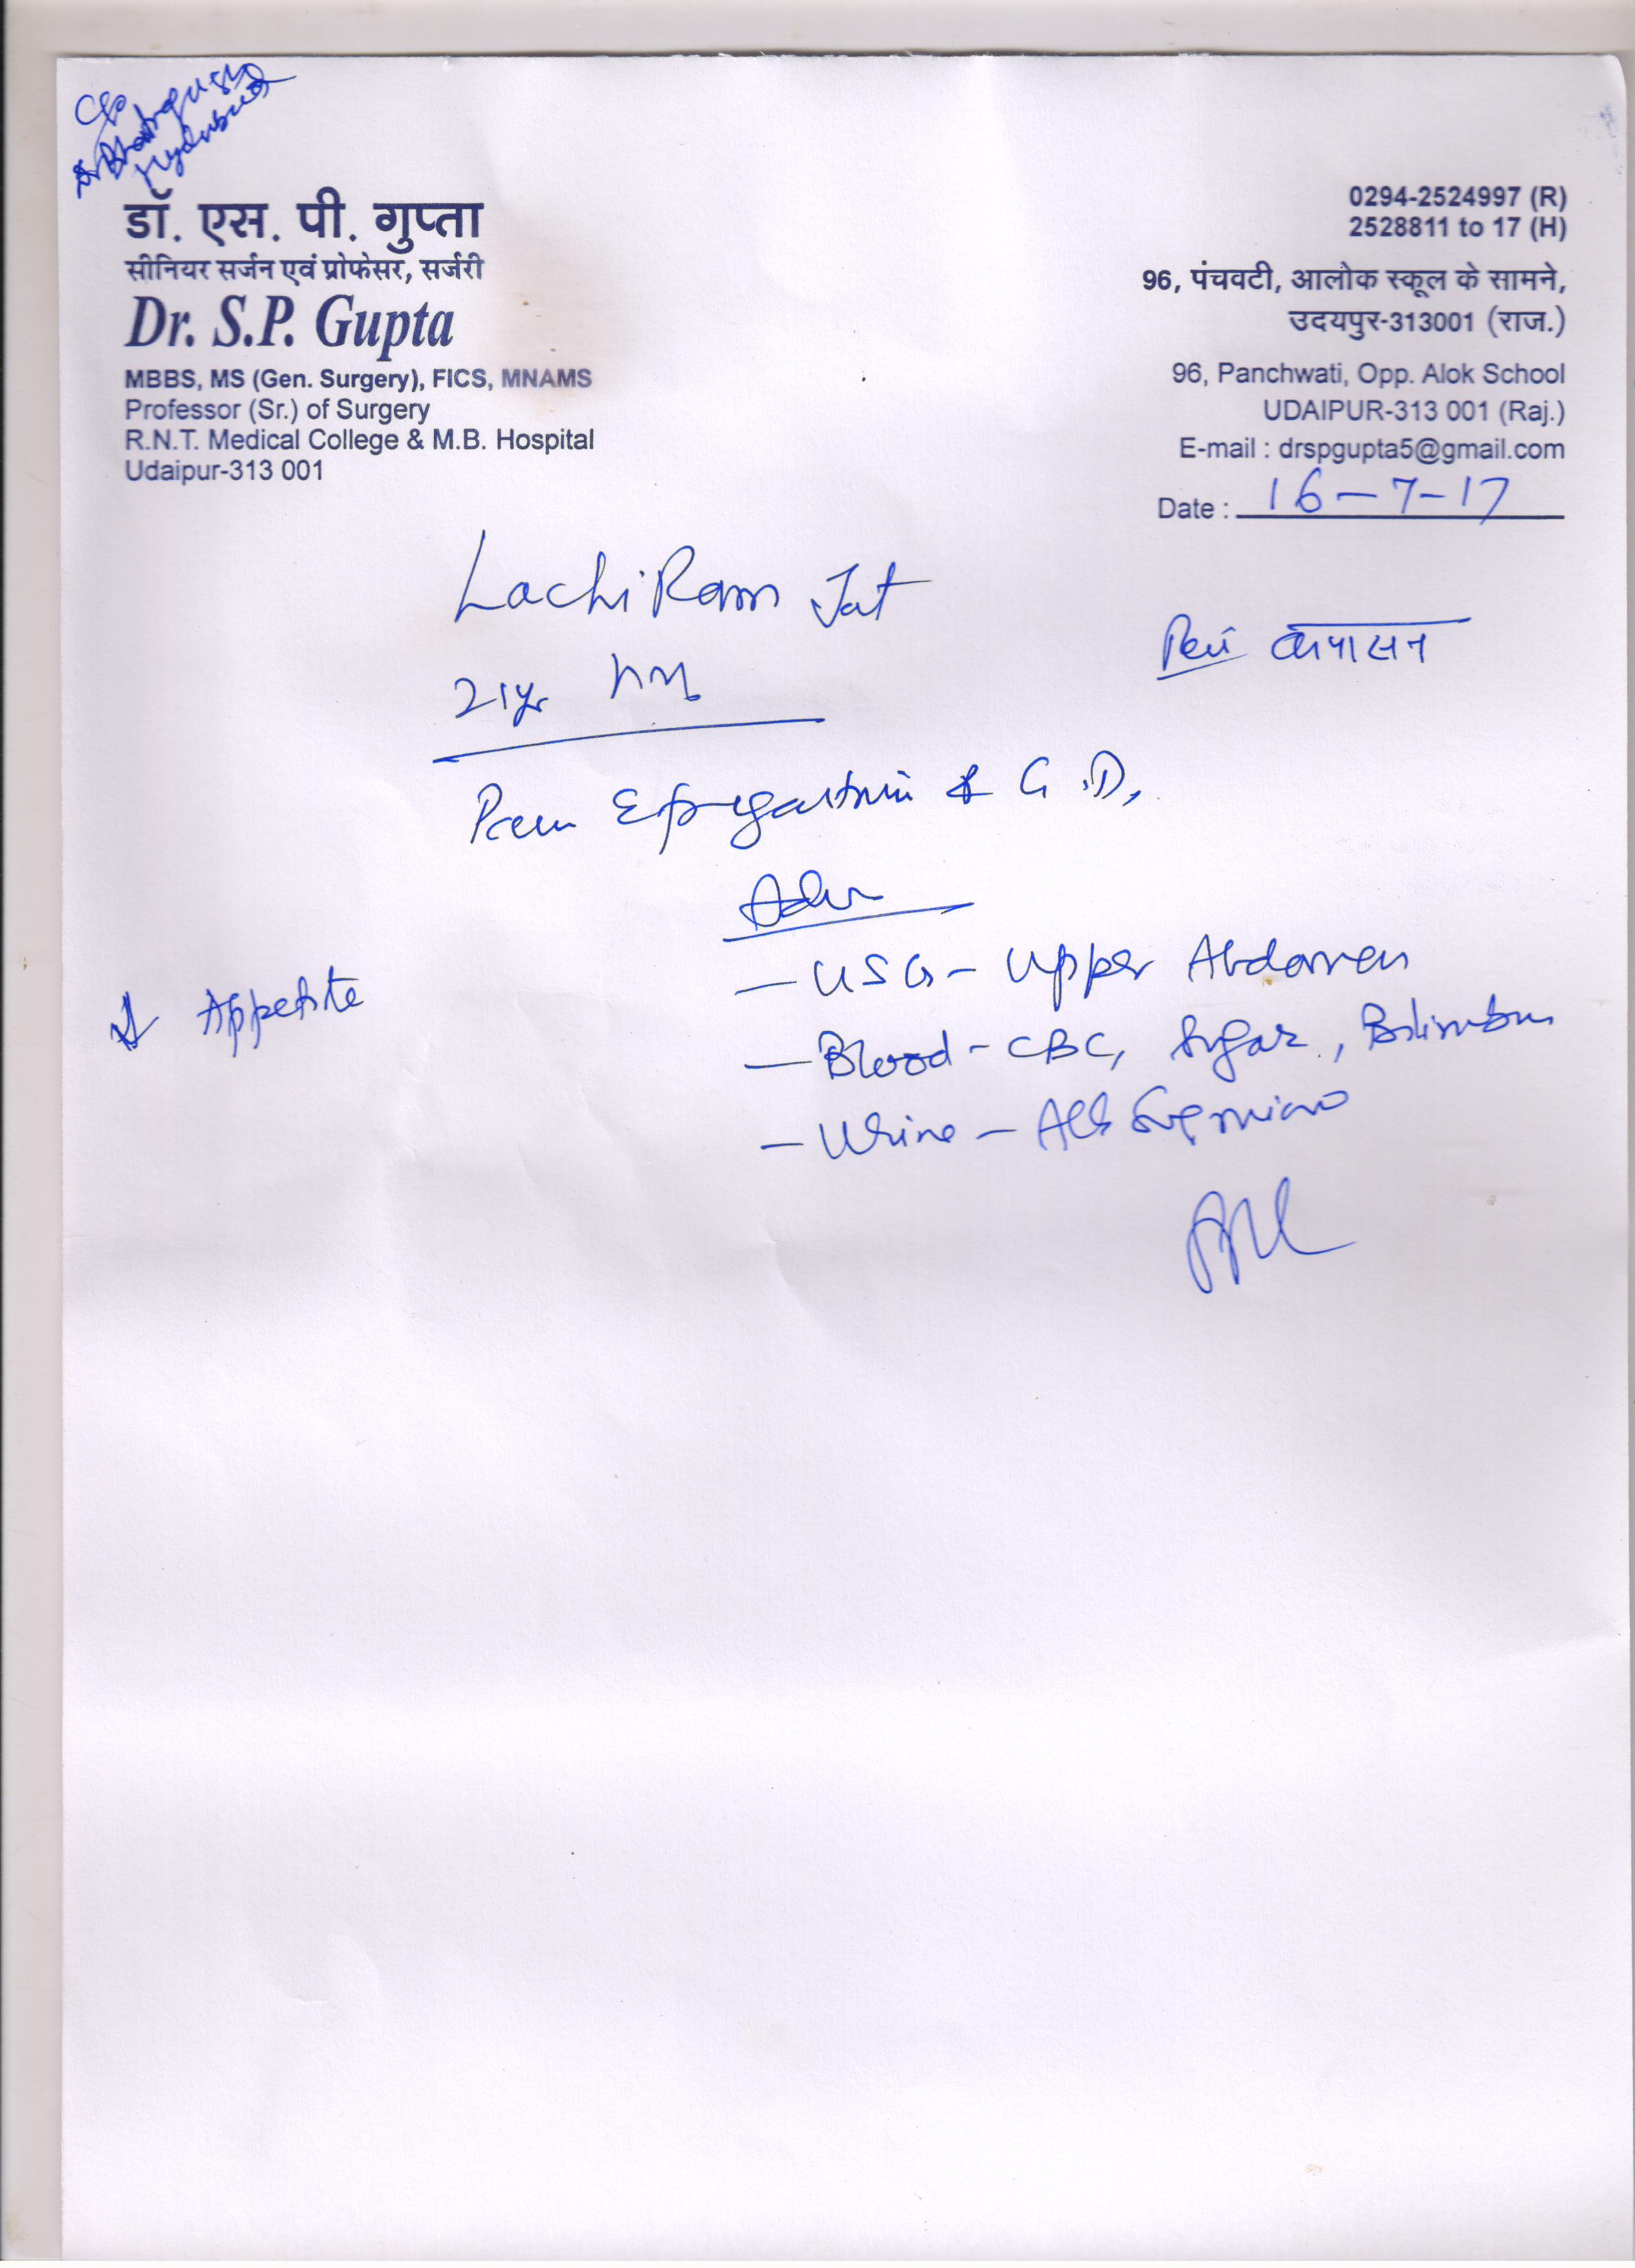 C/o
डॉ. एस. पी. गुप्ता
सीनियर सर्जन एवं प्रोफेसर, सर्जरी
Dr. S.P. Gupta
MBBS, MS (Gen. Surgery), FICS, MNAMS
Professor (Sr.) of Surgery
R.N.T. Medical College & M.B. Hospital
Udaipur-313 001
0294-2524997 (R)
2528811 to 17 (H)
96, पंचवटी, आलोक स्कूल के सामने,
उदयपुर-313001 (राज.)
96, Panchwati, Opp. Alok School
UDAIPUR-313 001 (Raj.)
E-mail : drspgupta5@gmail.com
Date : 16-7-17
Lachi Ram Jat
कपासन
21yr
Pain Epigastrium & G.D,
Adv
- USG - Upper Abdomen
↓ Appetite
- Blood - CBC, Sugar, Bilirubin
- Urine - Alb Sug micro